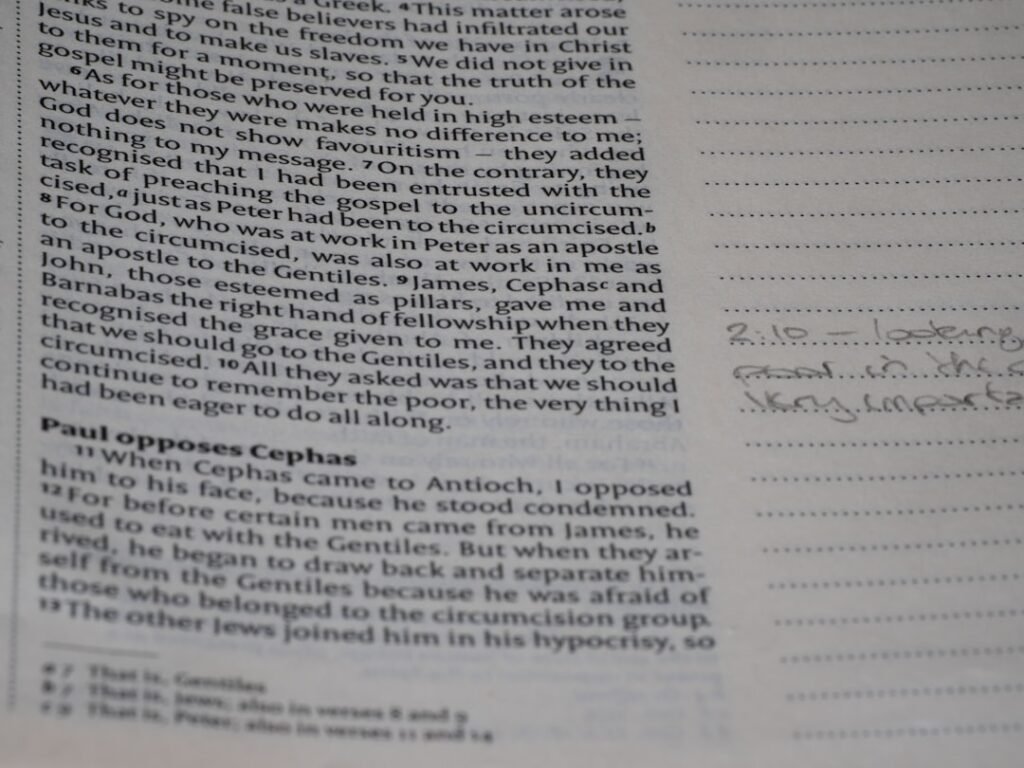 a Greek. ⁴This matter arose
some false believers had infiltrated our
ranks to spy on the freedom we have in Christ
Jesus and to make us slaves. ⁵We did not give in
to them for a moment, so that the truth of the
gospel might be preserved for you.
⁶As for those who were held in high esteem —
whatever they were makes no difference to me;
God does not show favouritism — they added
nothing to my message. ⁷On the contrary, they
recognised that I had been entrusted with the
task of preaching the gospel to the uncircum-
cised,ᵃ just as Peter had been to the circumcised.ᵇ
⁸For God, who was at work in Peter as an apostle
to the circumcised, was also at work in me as
an apostle to the Gentiles. ⁹James, Cephasᶜ and
John, those esteemed as pillars, gave me and
Barnabas the right hand of fellowship when they
recognised the grace given to me. They agreed
that we should go to the Gentiles, and they to the
circumcised. ¹⁰All they asked was that we should
continue to remember the poor, the very thing I
had been eager to do all along.
Paul opposes Cephas
¹¹When Cephas came to Antioch, I opposed
him to his face, because he stood condemned.
¹²For before certain men came from James, he
used to eat with the Gentiles. But when they ar-
rived, he began to draw back and separate him-
self from the Gentiles because he was afraid of
those who belonged to the circumcision group.
¹³The other Jews joined him in his hypocrisy, so
a 7 That is, Gentiles
b 7 That is, Jews; also in verses 8 and 9
c 9 That is, Peter; also in verses 11 and 14
2:10 – looking
poor in the
very importa